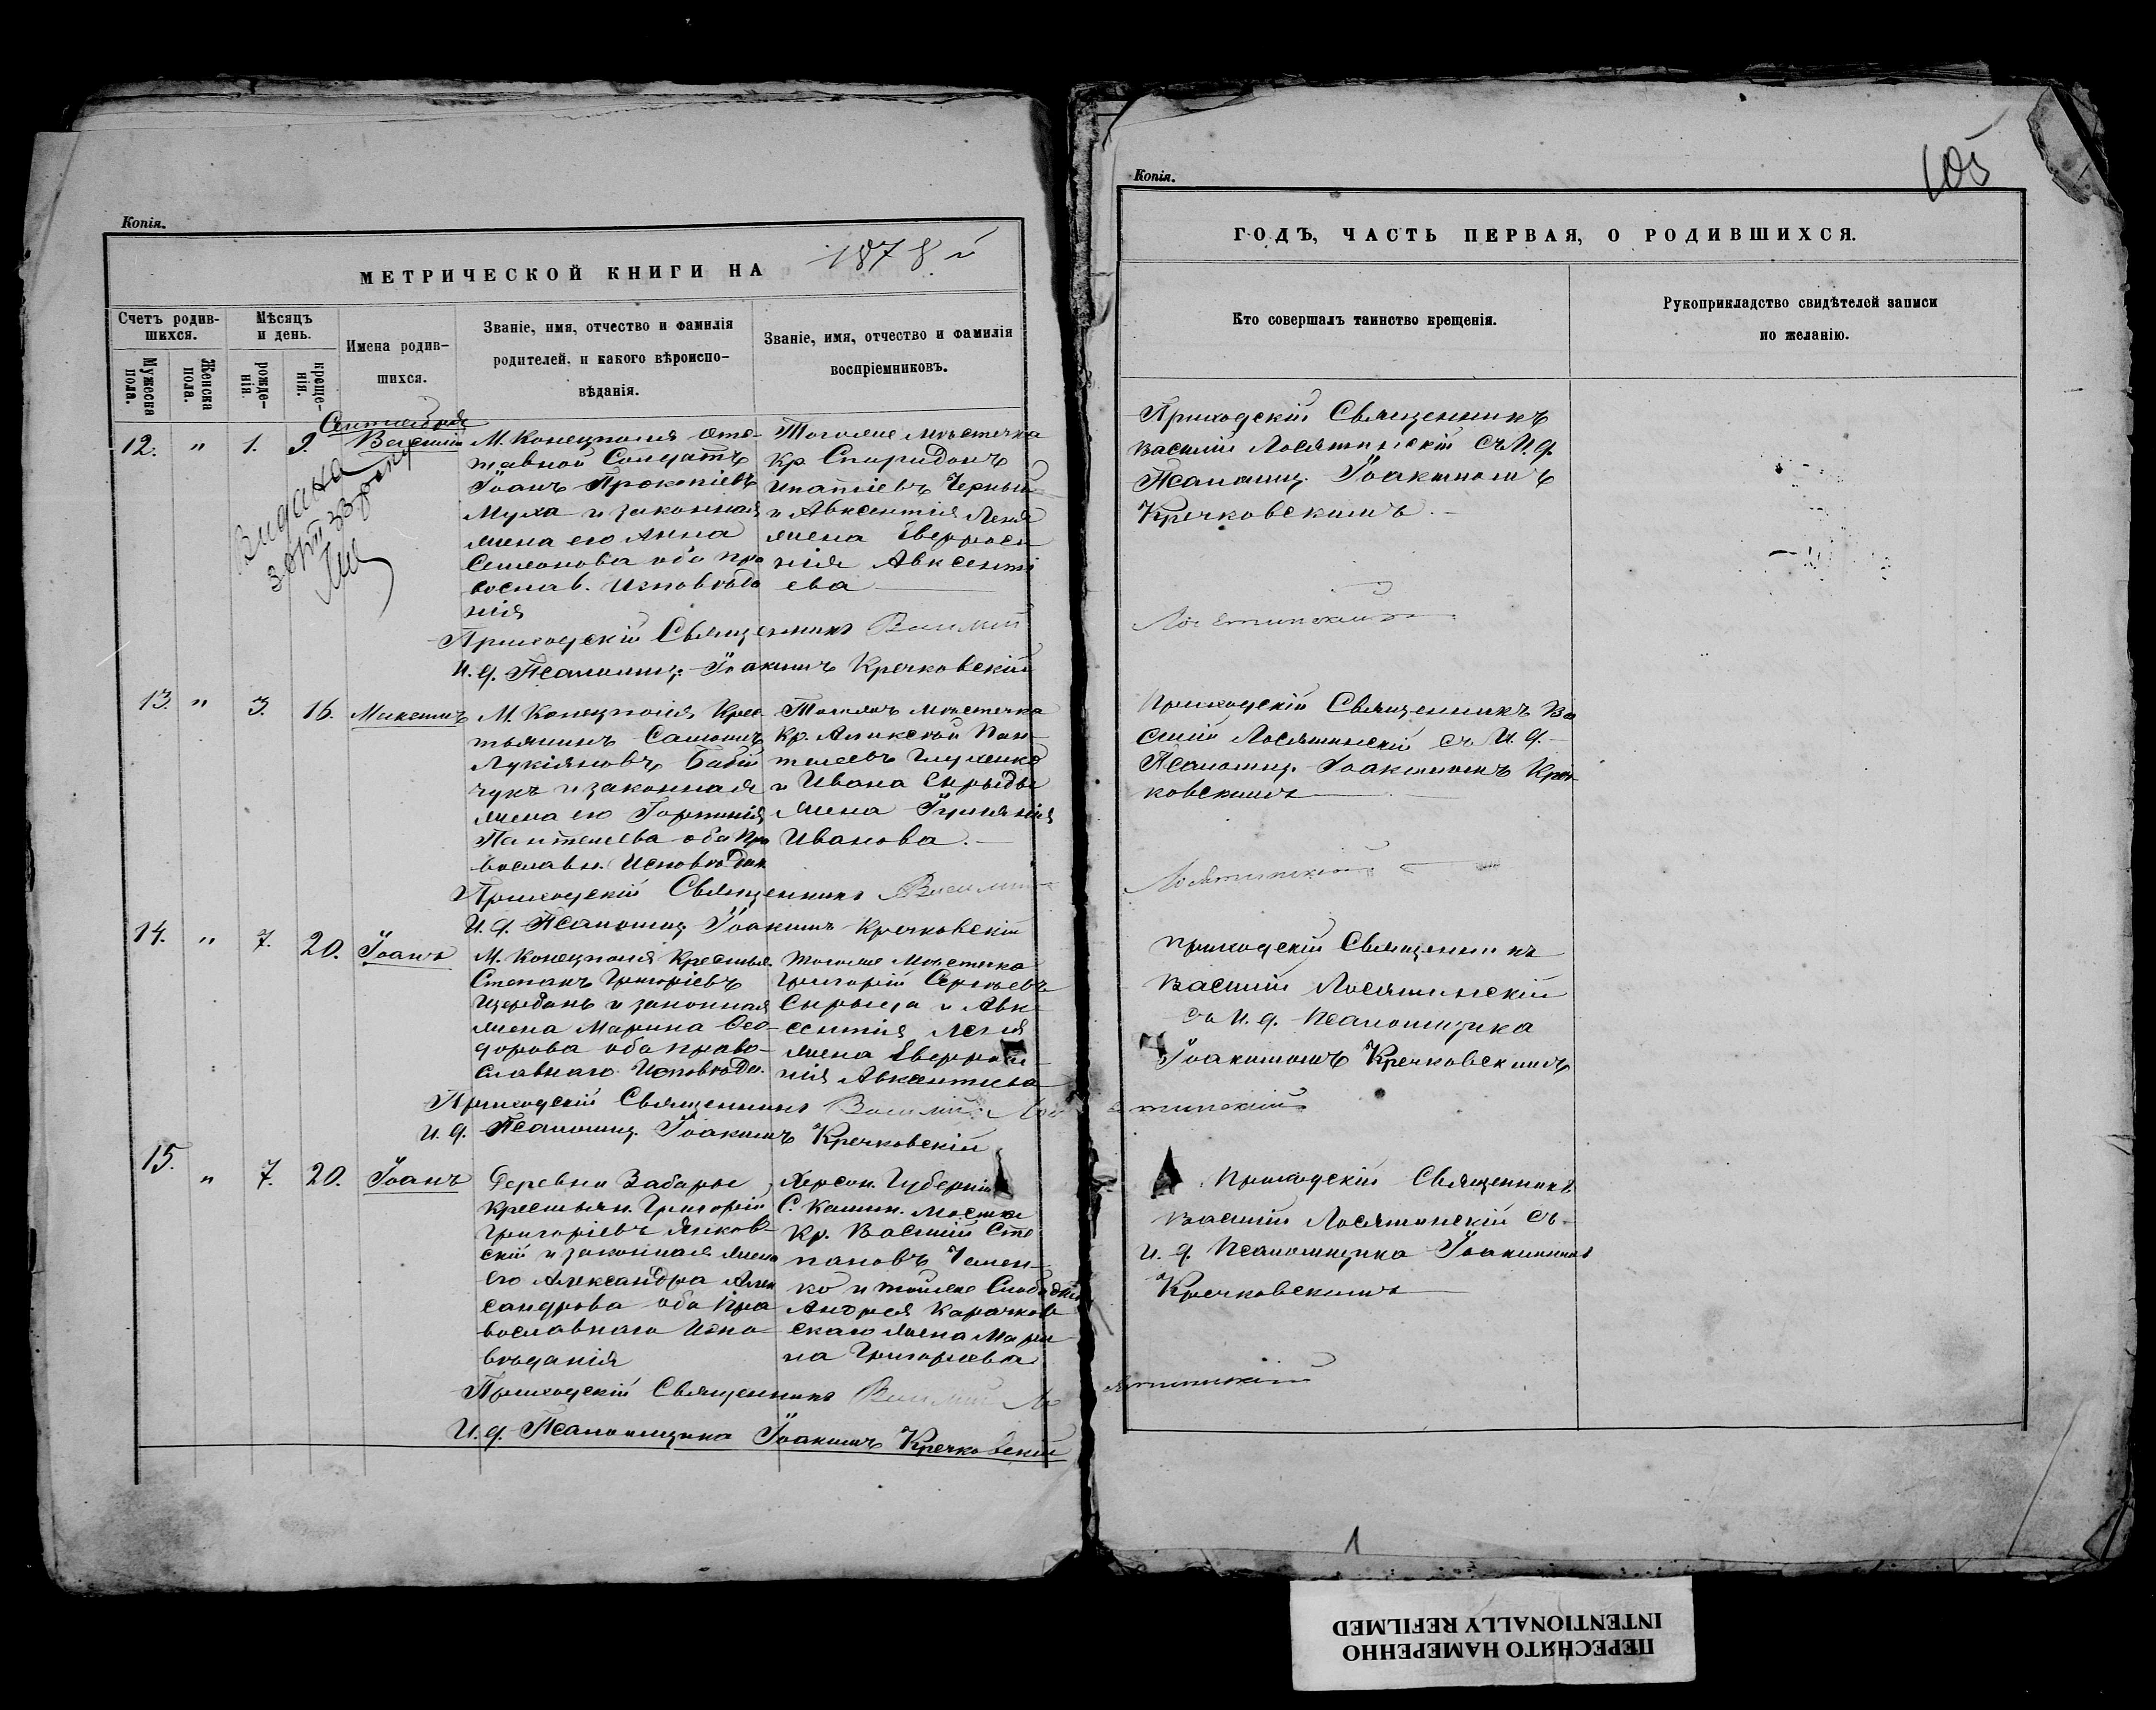 Копія.
МЕТРИЧЕСКОЙ КНИГИ НА 1878 й
Счетъ родив-
шихся.
Мужеска пола.
Женска пола.
Мѣсяцъ и день.
рожде-
нія.
креще-
нія.
Имена родив-
шихся.
Званіе, имя, отчество и фамилія
родителей, и какого вѣроиспо-
вѣданія.
Званіе, имя, отчество и фамилія
воспріемниковъ.
Сентября
12. " 1. 9. Василій
М. Конецполя отс-
тавной Солдатъ
Іоанъ Прокопіевъ
Муха и законная
жена его Анна
Семенова оба пра
вослав. Исповѣда
нія
Тогоже мѣстечка
кр. Спиридонъ
Ипатіевъ Черный
и Авксентія
жена Евфроси
нія Авксенті
ева
Видана
Приходскій Священникъ Василій
И. д. Псаломщ. Іоакимъ Кречковскій
13. " 3. 16. Никита
М. Конецполя, Крес
тьянинъ
Лукіяновъ Бабій
чукъ и законная
жена его
Пантелеева оба Пра
вославн. Исповѣдан
Тогожъ мѣстечка
Кр. Алексѣй Пан-
телеевъ
и Ивана
жена Іуліянія
Иванова.
Приходскій Священникъ Василій
И. д. Псаломщ Іоакимъ Кречковскій
14. " 7. 20. Іоанъ
М. Конецполя Крестья.
Степанъ Григоріевъ
и законная
жена Марина Ѳео-
дорова оба право-
славнаго Исповѣда.
Тогоже Мѣстечка
Григорій Сергѣевъ
и Авк-
сентія
жена Евфроси
нія Авксентиева
Приходскій Священникъ Василій Лос
И. д. Псаломщ. Іоакимъ Кречковскій
15. " 7. 20. Іоанъ
Деревни Забары
крестьян. Григорій
Григоріевъ Янков-
скій и законная жена
его Александра Алек
сандрова оба Пра
вославнаго Испо-
вѣданія
Херсон. Губерніи
С. Камен. Моста
Кр. Василій Сте
пановъ
ко и тойже Слободки
Андрея
скаго жена Мари
на Григориева
Приходскій Священникъ Василій Ло
И. д. Псаломщика Іоакимъ Кречковскій
Копія.
105
ГОДЪ, ЧАСТЬ ПЕРВАЯ, О РОДИВШИХСЯ.
Кто совершалъ таинство крещенія.
Рукоприкладство свидѣтелей записи
по желанію.
Приходскій Священникъ
Василій Лосятинскій съ И. д.
Псаломщ. Іоакимомъ
Кречковскимъ.
Лосятинскій
Приходскій Священникъ Ва
силій Лосятинскій съ И. д.
Псаломщ. Іоакимомъ Креч
ковскимъ
Лосятинскій
Приходскій Священникъ
Василій Лосятинскій
съ И. д. Псаломщика
Іоакимомъ Кречковскимъ
ятинскій
Приходскій Священникъ
Василій Лосятинскій съ
и. д. Псаломщика Іоакимомъ
Кречковскимъ
сятинскій
1
ПЕРЕСНЯТО НАМЕРЕННО
INTENTIONALLY REFILMED